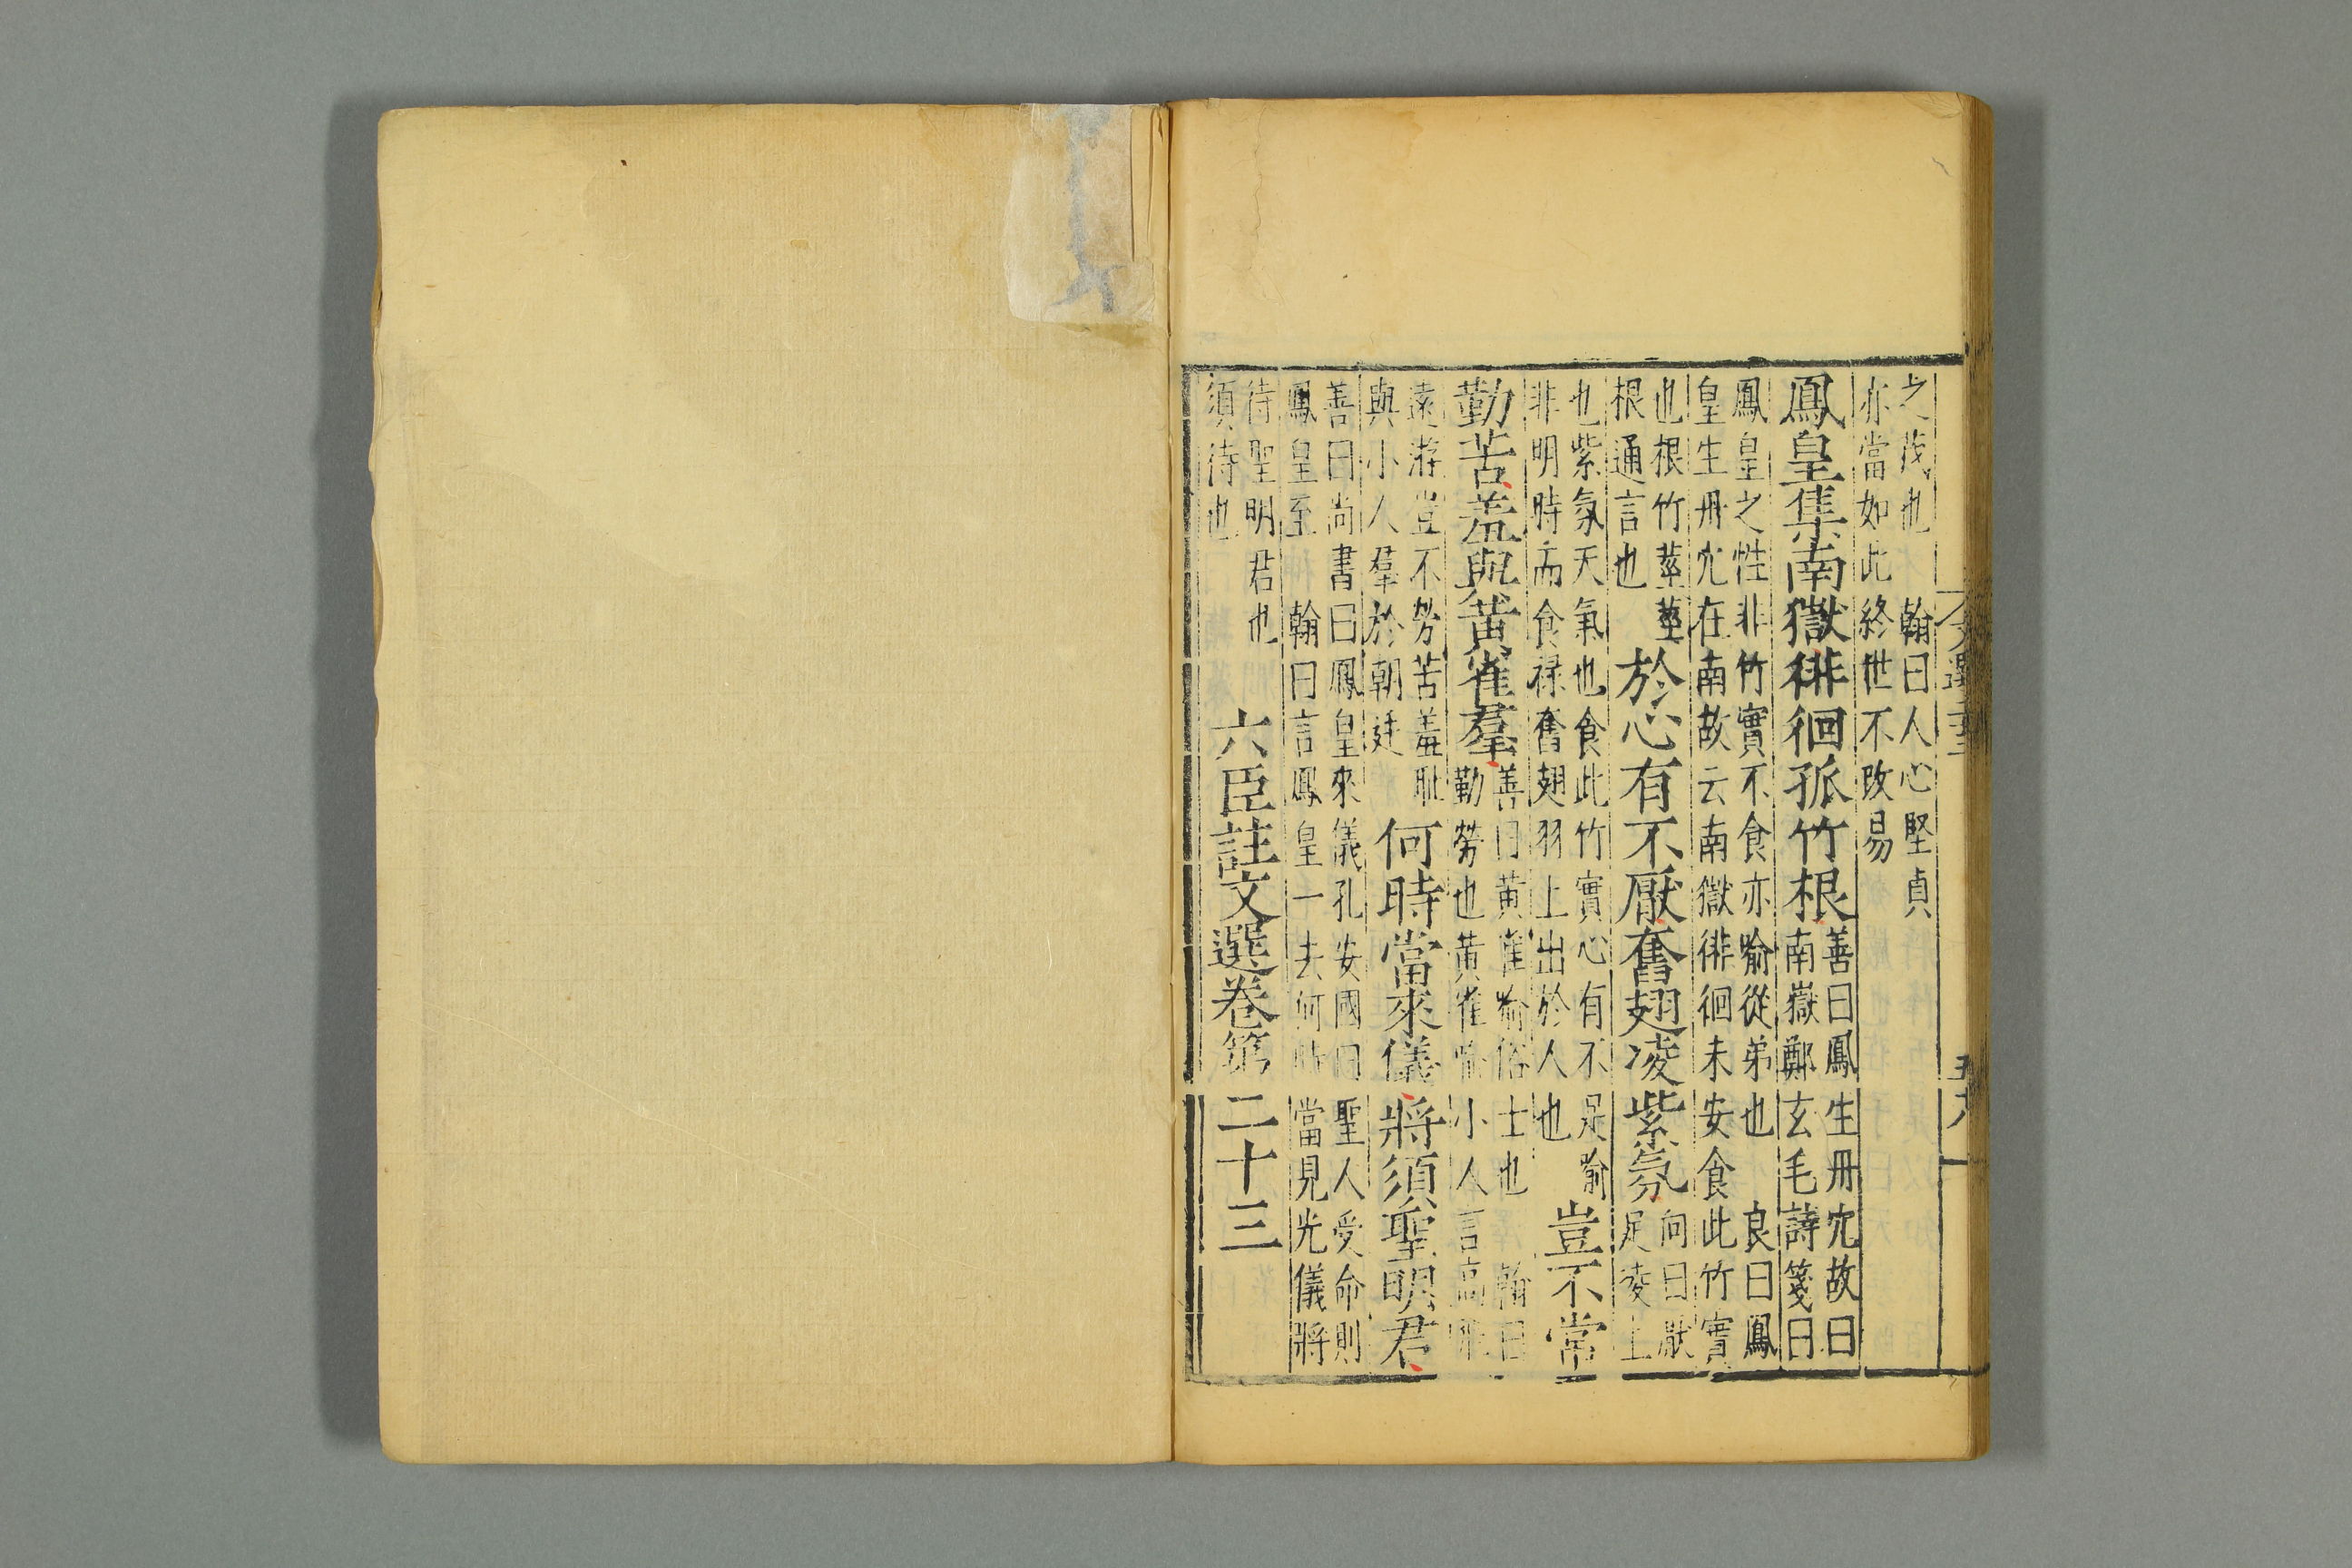 之茂也　翰曰人心堅貞
亦當如此終世不改易
鳳皇集南嶽徘徊孤竹根
善曰鳳生丹穴故曰
南嶽鄭玄毛詩箋曰
鳳皇之性非竹實不食亦喻從弟也　良曰鳳
皇生丹穴在南故云南嶽徘徊未安食此竹實
也根竹莖莖
根通言也
於心有不厭奮翅凌紫氛
向曰厭
足凌上
也紫氛天氣也食此竹實心有不足喻
非明時而食祿奮翅羽上出於人也
豈不常
勤苦羞與黃雀羣
善曰黃雀喻俗士也　翰曰
勤勞也黃雀喻小人言高
遠遊豈不勞苦羞耻
與小人羣於朝廷
何時當來儀將須聖明君
善曰尚書曰鳳皇來儀孔安國曰聖人受命則
鳳皇至　翰曰言鳳皇一去何時當見光儀將
待聖明君也
須待也
六臣註文選卷第二十三